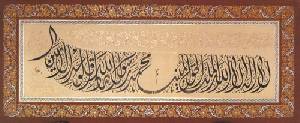 لا اله الا الله الملك الحق المبين محمد رسول الله صادق الوعد الامين